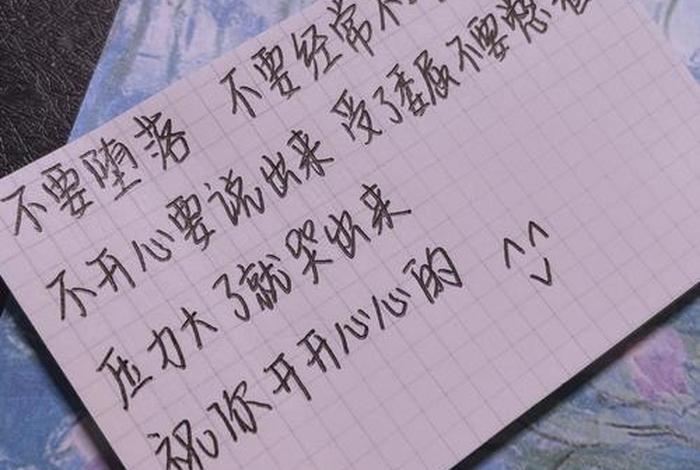 不要堕落 不要经常不
不开心要说出来 受了委屈不要憋着
压力大了就哭出来
祝你开开心心的 ^^